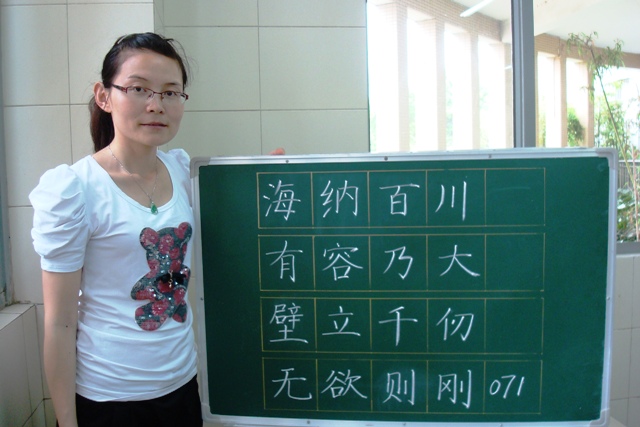 海纳百川
有容乃大
壁立千仞
无欲则刚 071